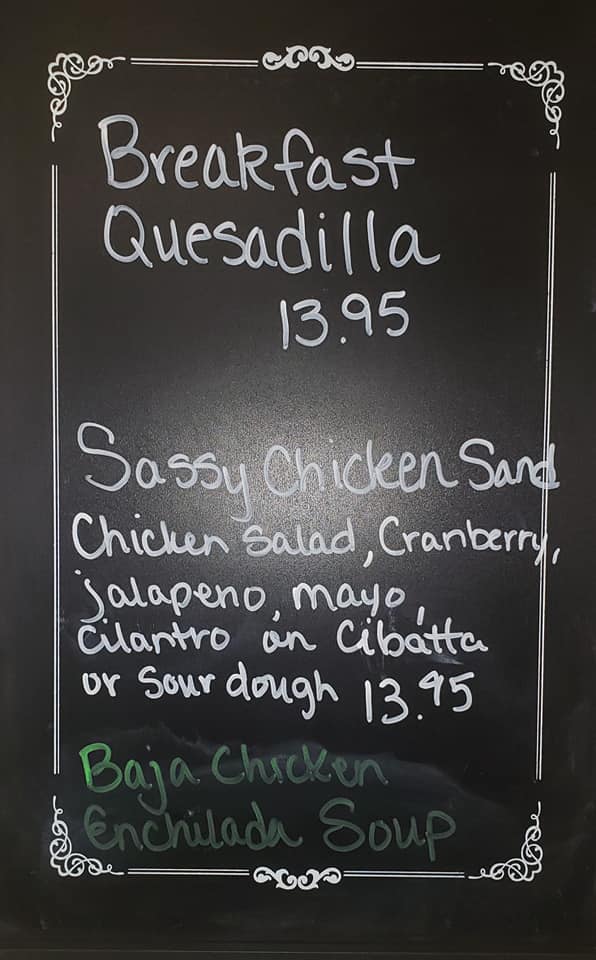 Breakfast
Quesadilla
13.95
Sassy Chicken Sand
Chicken Salad, Cranberry,
jalapeno, mayo,
cilantro on Cibatta
or Sour dough 13.95
Baja Chicken
Enchilada Soup